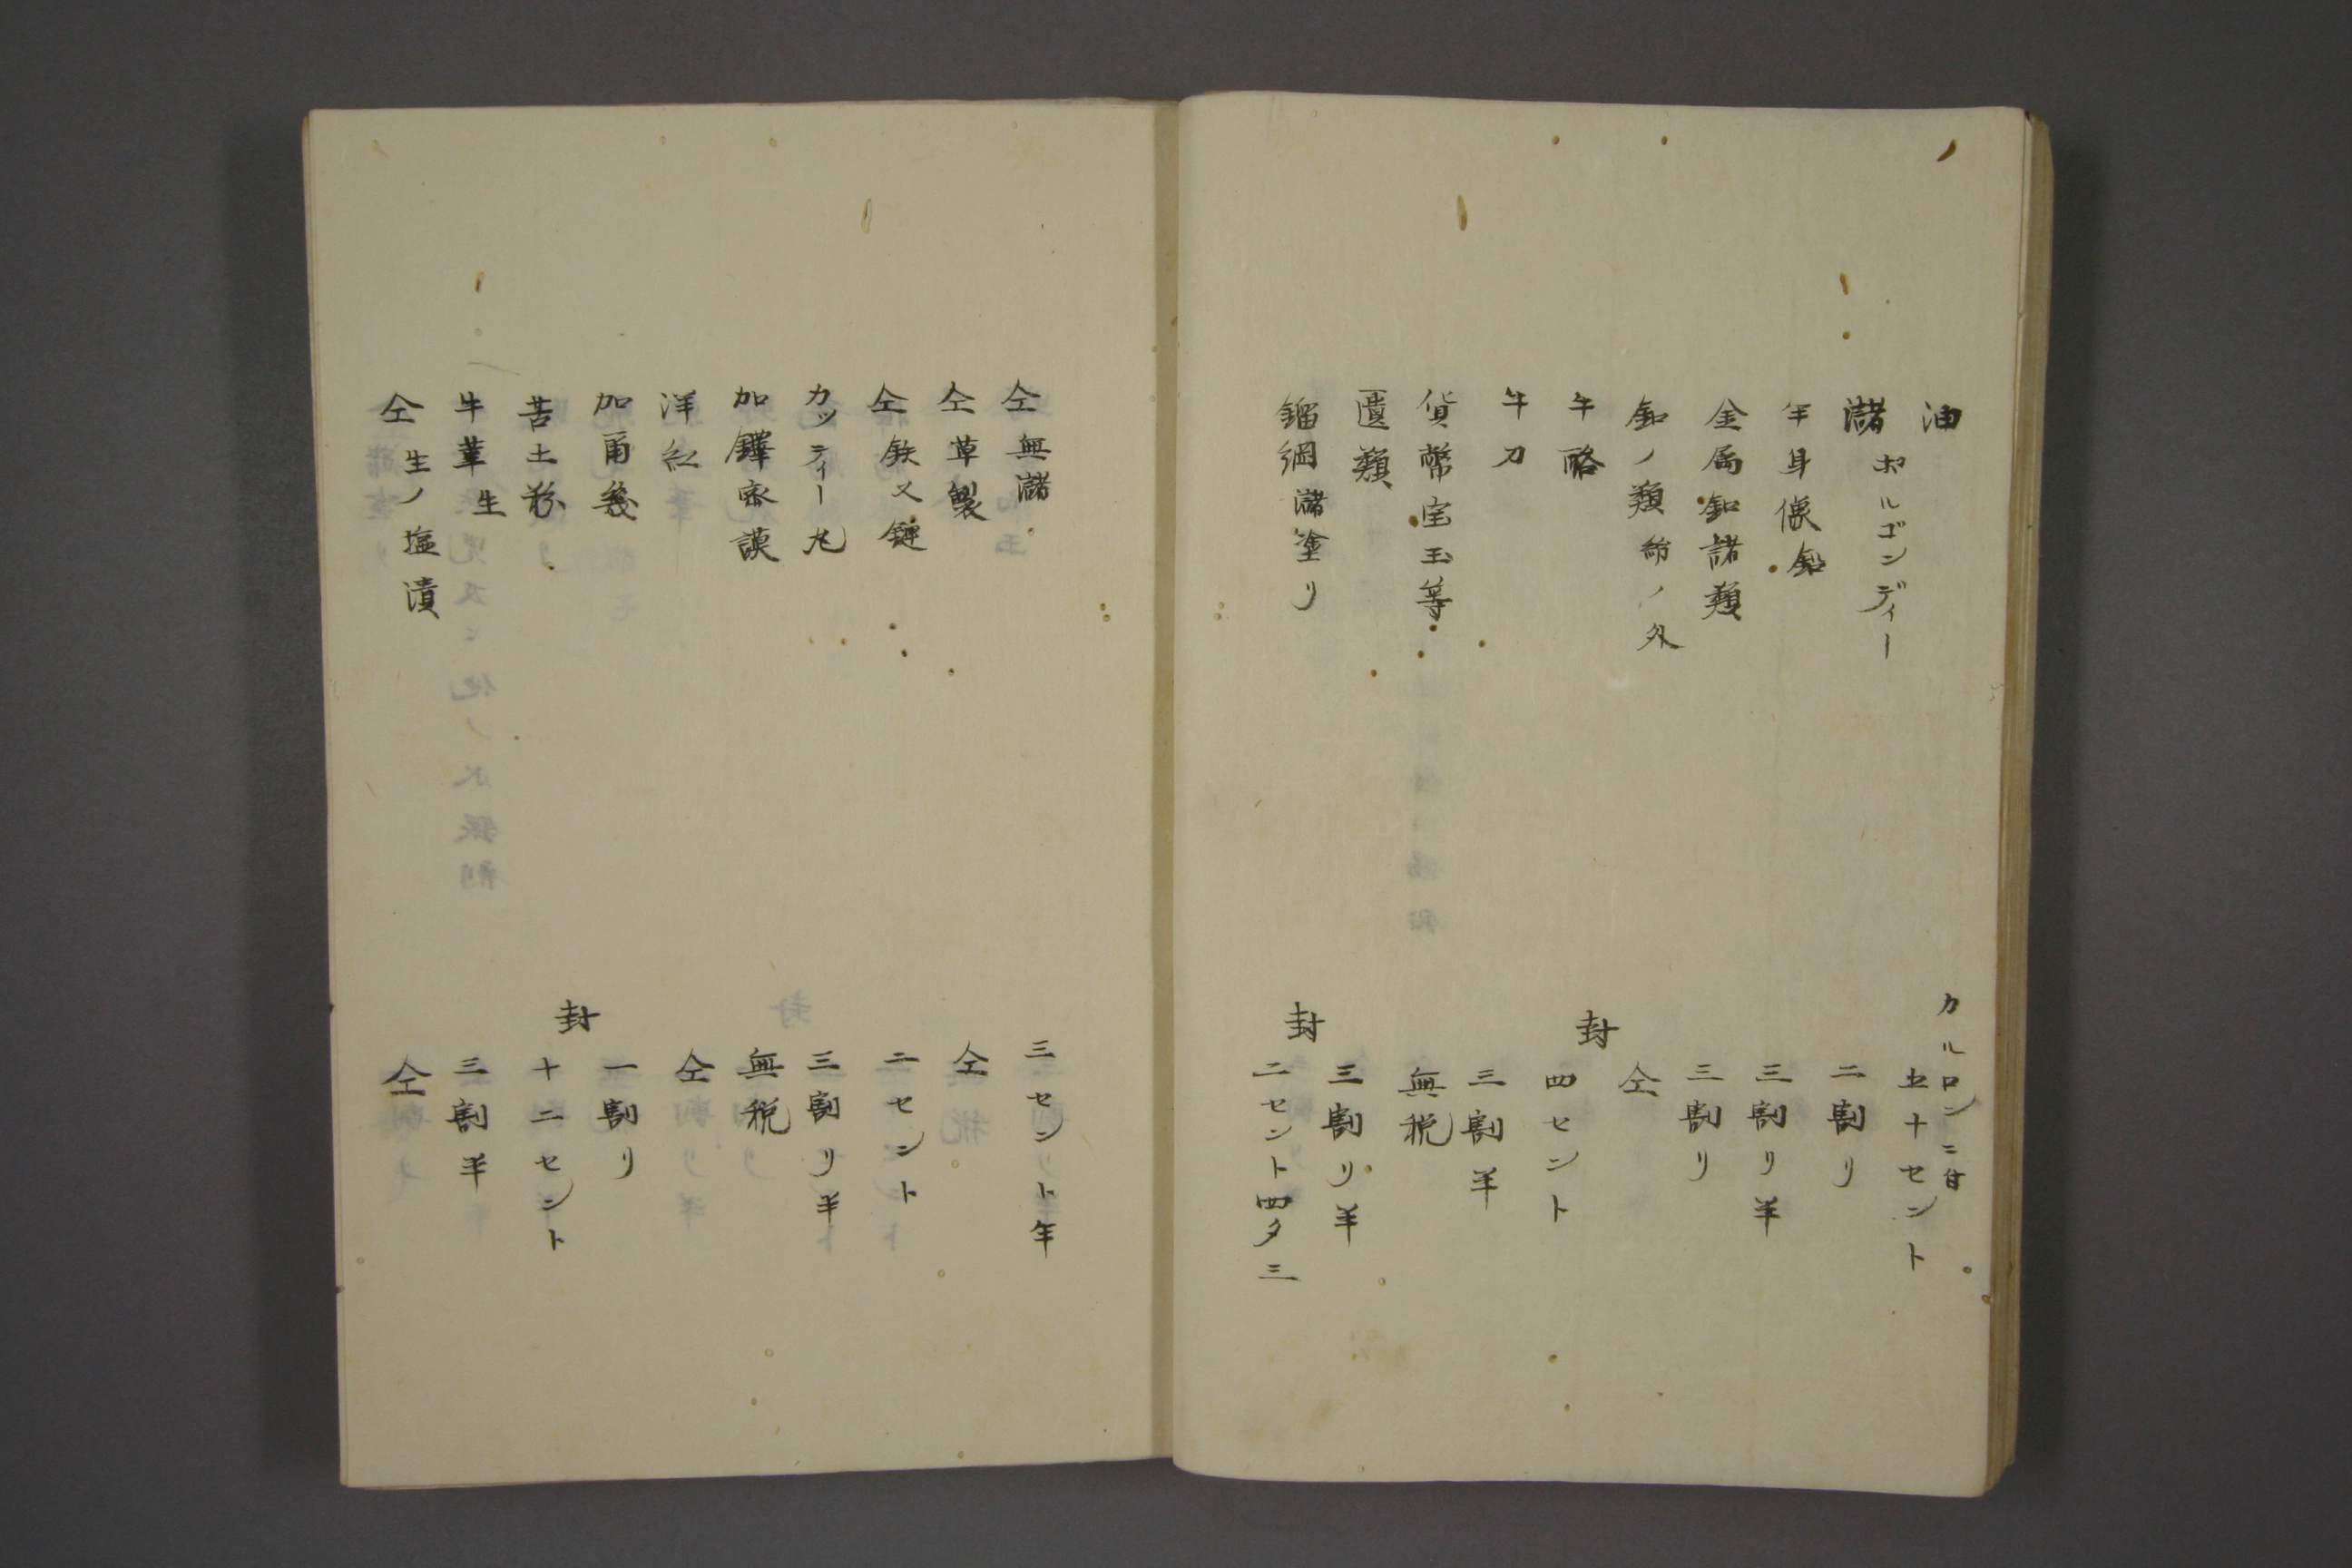 油 カルロンニ付 五十セント
瀦 ボルゴンディー 二割リ
半身像 鉛 三割リ半
金属釦諸類 三割リ
釦ノ類 ノ外 仝
牛酪 封 四セント
牛刀 三割半
貨幣宝玉等 無税
匱類 三割リ半
鎦綱瀦塗リ 封 二セント四タ三
仝無瀦 三セント半
仝草製 仝
仝鉄又鏈 二セント
カッティー丸 三割リ半
加鐸家謨 無税
洋紅 仝
加爾幾 一割リ
苦土粉 封 十二セント
牛葷生 三割半
仝生ノ塩漬 仝